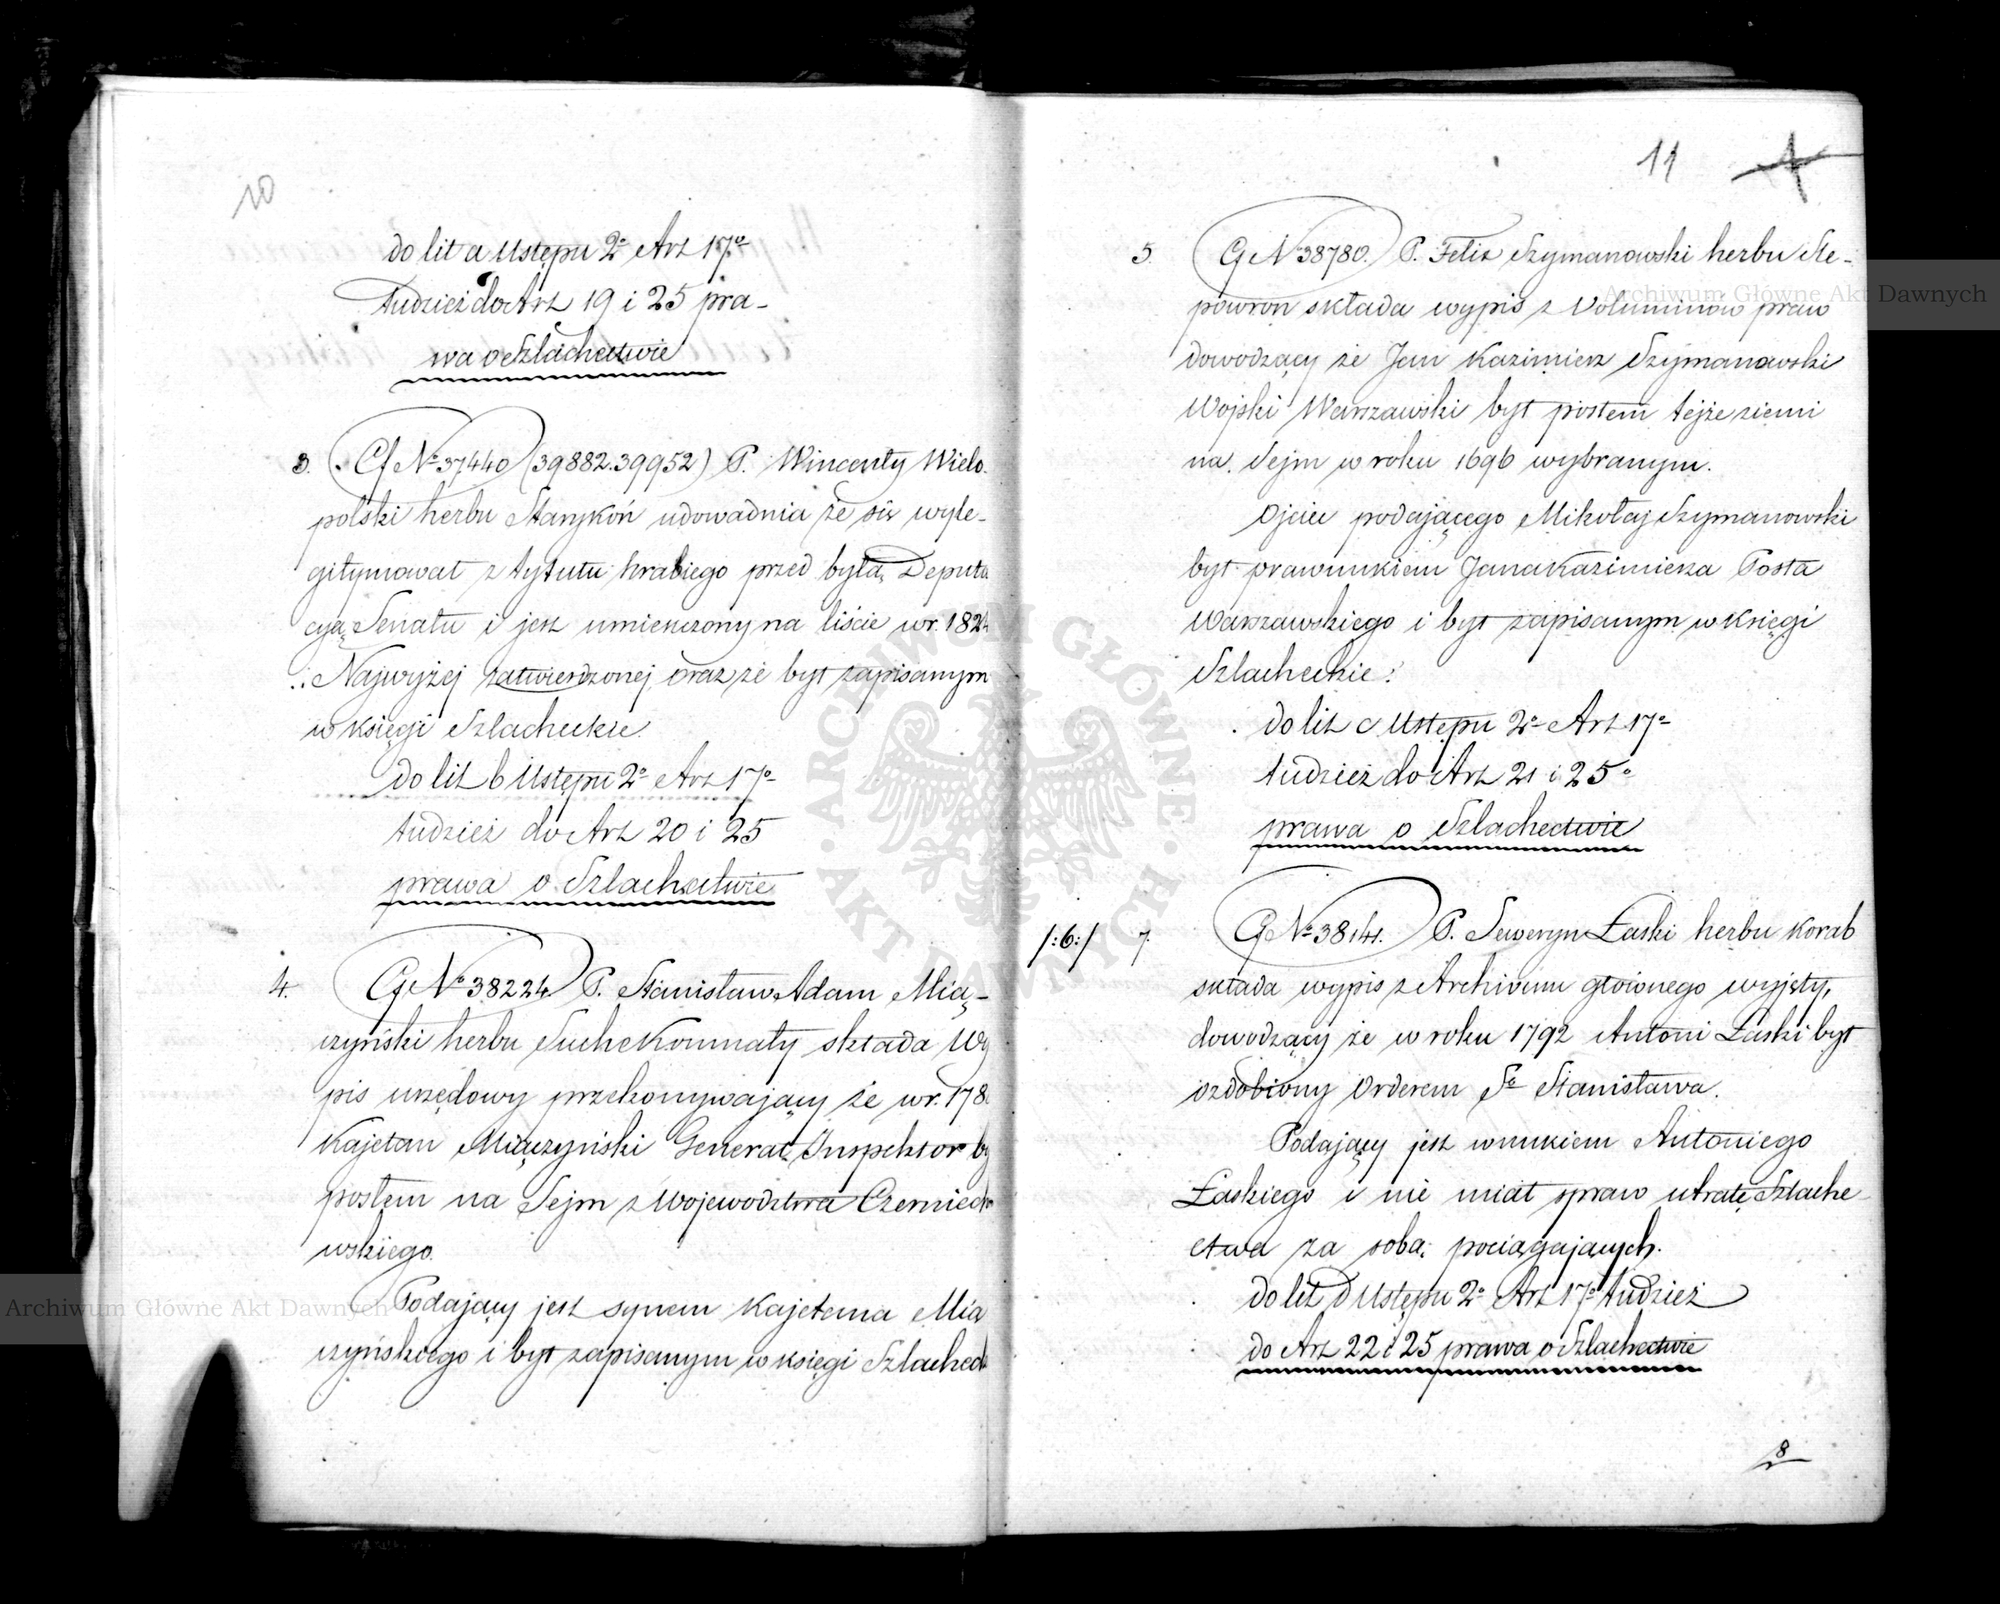 10
do lit a Ustępu 2º Art 17º
tudzież do Art 19 i 25 pra-
wa o Szlachectwie
3. Cf Nº 37440 (39882.39952) P. Wincenty Wielo-
polski herbu Starykoń udowadnia że się wyle-
gitymował z tytułu hrabiego przed byłą Deputa
cyą Senatu i jest umieszczony na liście w r. 1824
Najwyżej zatwierdzonej oraz że był zapisanym
w księgi Szlacheckie.
do lit b Ustępu 2º Art 17º
tudzież do Art 20 i 25
prawa o Szlachectwie
4. Cf Nº 38224 P. Stanisław Adam Mią-
czyński herbu Suche Komnaty składa Wy
pis urzędowy przekonywający że w r. 178
Kajetan Miączyński Generał Inspektor by
posłem na Sejm z Województwa Czerniech
wskiego.
Podający jest synem Kajetana Mią
czyńskiego i był zapisanym w księgi Szlacheck
11
5. Cf Nº 38780. P. Felix Szymanowski herbu Śle-
powron składa wypis z Voluminów praw
dowodzący że Jan Kazimierz Szymanowski
Wojski Warszawski był posłem tejże ziemi
na Sejm w roku 1696 wybranym.
Ojciec podającego Mikołaj Szymanowski
był prawnukiem Jana Kazimierza Posła
Warszawskiego i był zapisanym w księgi
Szlacheckie:
do lit c Ustępu 2º Art 17º
tudzież do Art 21 i 25º
prawa o Szlachectwie
/:6:/ 7. Cf Nº 38141. P. Seweryn Łaski herbu Korab
składa wypis z Archivum głównego wyjęty,
dowodzący że w roku 1792 Antoni Łaski był
ozdobiony Orderem Sº Stanisława.
Podający jest wnukiem Antoniego
Łaskiego i nie miał spraw utratę Szlache-
ctwa za sobą pociągających.
do lit d Ustępu 2º Art 17º tudzież
do Art 22 i 25 prawa o Szlachectwie
8
Archiwum Główne Akt Dawnych
Archiwum Główne Akt Dawnych
ARCHIWUM GŁÓWNE · AKT DAWNYCH ·